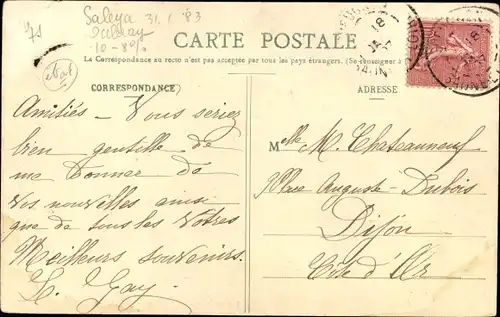 71
Saleya 31.1.83
10-80/0
état
CARTE POSTALE
La Correspondance au recto n'est pas acceptée par tous les pays étrangers. (Se renseigner à
CORRESPONDANCE
ADRESSE
Amitiés - Vous seriez
bien gentille de
me donner de
vos nouvelles ainsi
que de tous les vôtres
Meilleurs souvenirs.
L. Gay.
Melle M. Chateauneuf
Place Auguste-Dubois
Dijon
Côte d'Or